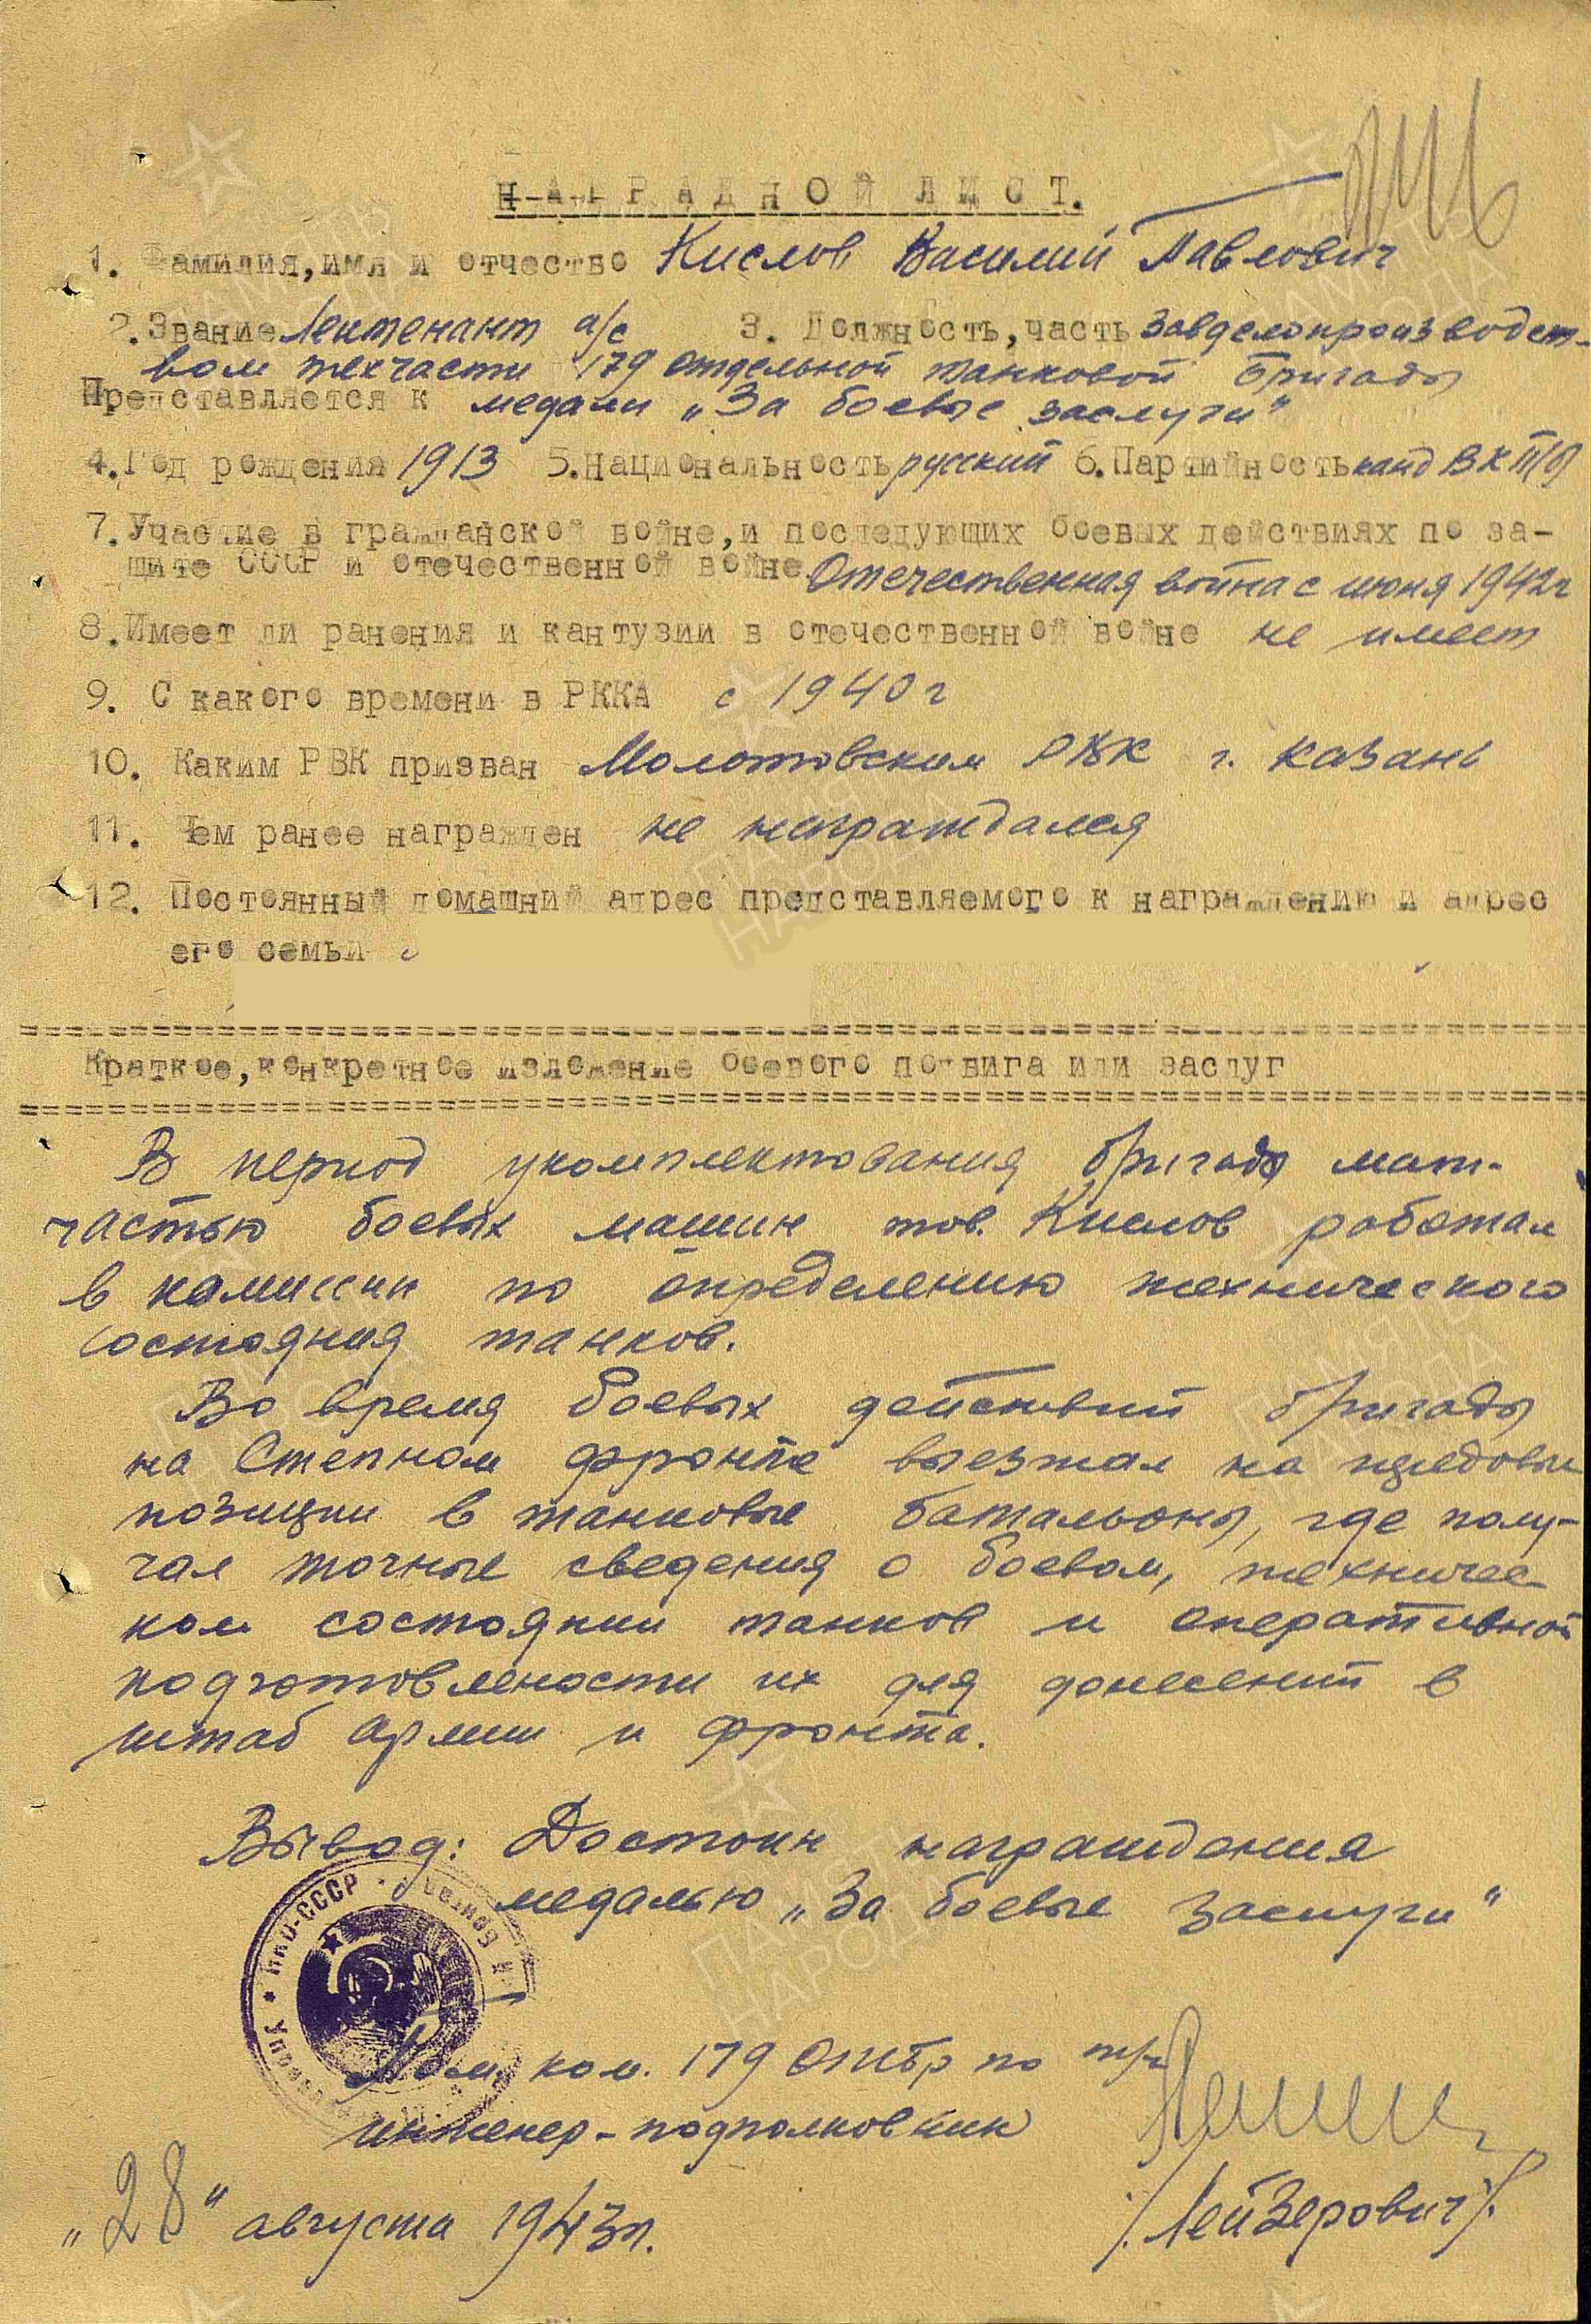 НАГРАДНОЙ ЛИСТ.
1. Фамилия, имя и отчество Кислов Василий Павлович
2. Звание Лейтенант а/с 3. Должность, часть Завделопроизводст-
вом техчасти 179 отдельной танковой бригады
Представляется к медали „За боевые заслуги"
4. Год рождения 1913 5. Национальность русский 6. Партийность канд ВКП(б)
7. Участие в гражданской войне, и последующих боевых действиях по за-
щите СССР и отечественной войне Отечественная война с июня 1942г
8. Имеет ли ранения и кантузии в отечественной войне не имеет
9. С какого времени в РККА с 1940г
10. Каким РВК призван Молотовским РВК г. Казань
11. Чем ранее награжден не награждался
12. Постоянный домашний адрес представляемого к награждению и адрес
его семьи
Краткое, конкретное изложение боевого подвига или заслуг
В период укомплектования бригады мат-
частью боевых машин тов. Кислов работал
в комиссии по определению технического
состояния танков.
Во время боевых действий бригады
на Степном фронте выезжал на
позиции в танковые батальоны, где полу-
чал точные сведения о боевом, техничес-
ком состоянии танков и оперативной
подготовлености их для донесений в
штаб армии и фронта.
Вывод: Достоин награждения
медалью „За боевые заслуги"
НКО-СССР
Пом. ком. 179 ОТБр по т/ч
инженер-подполковник
/Лейзерович/.
„28" августа 1943г.
ПАМЯТЬ НАРОДА